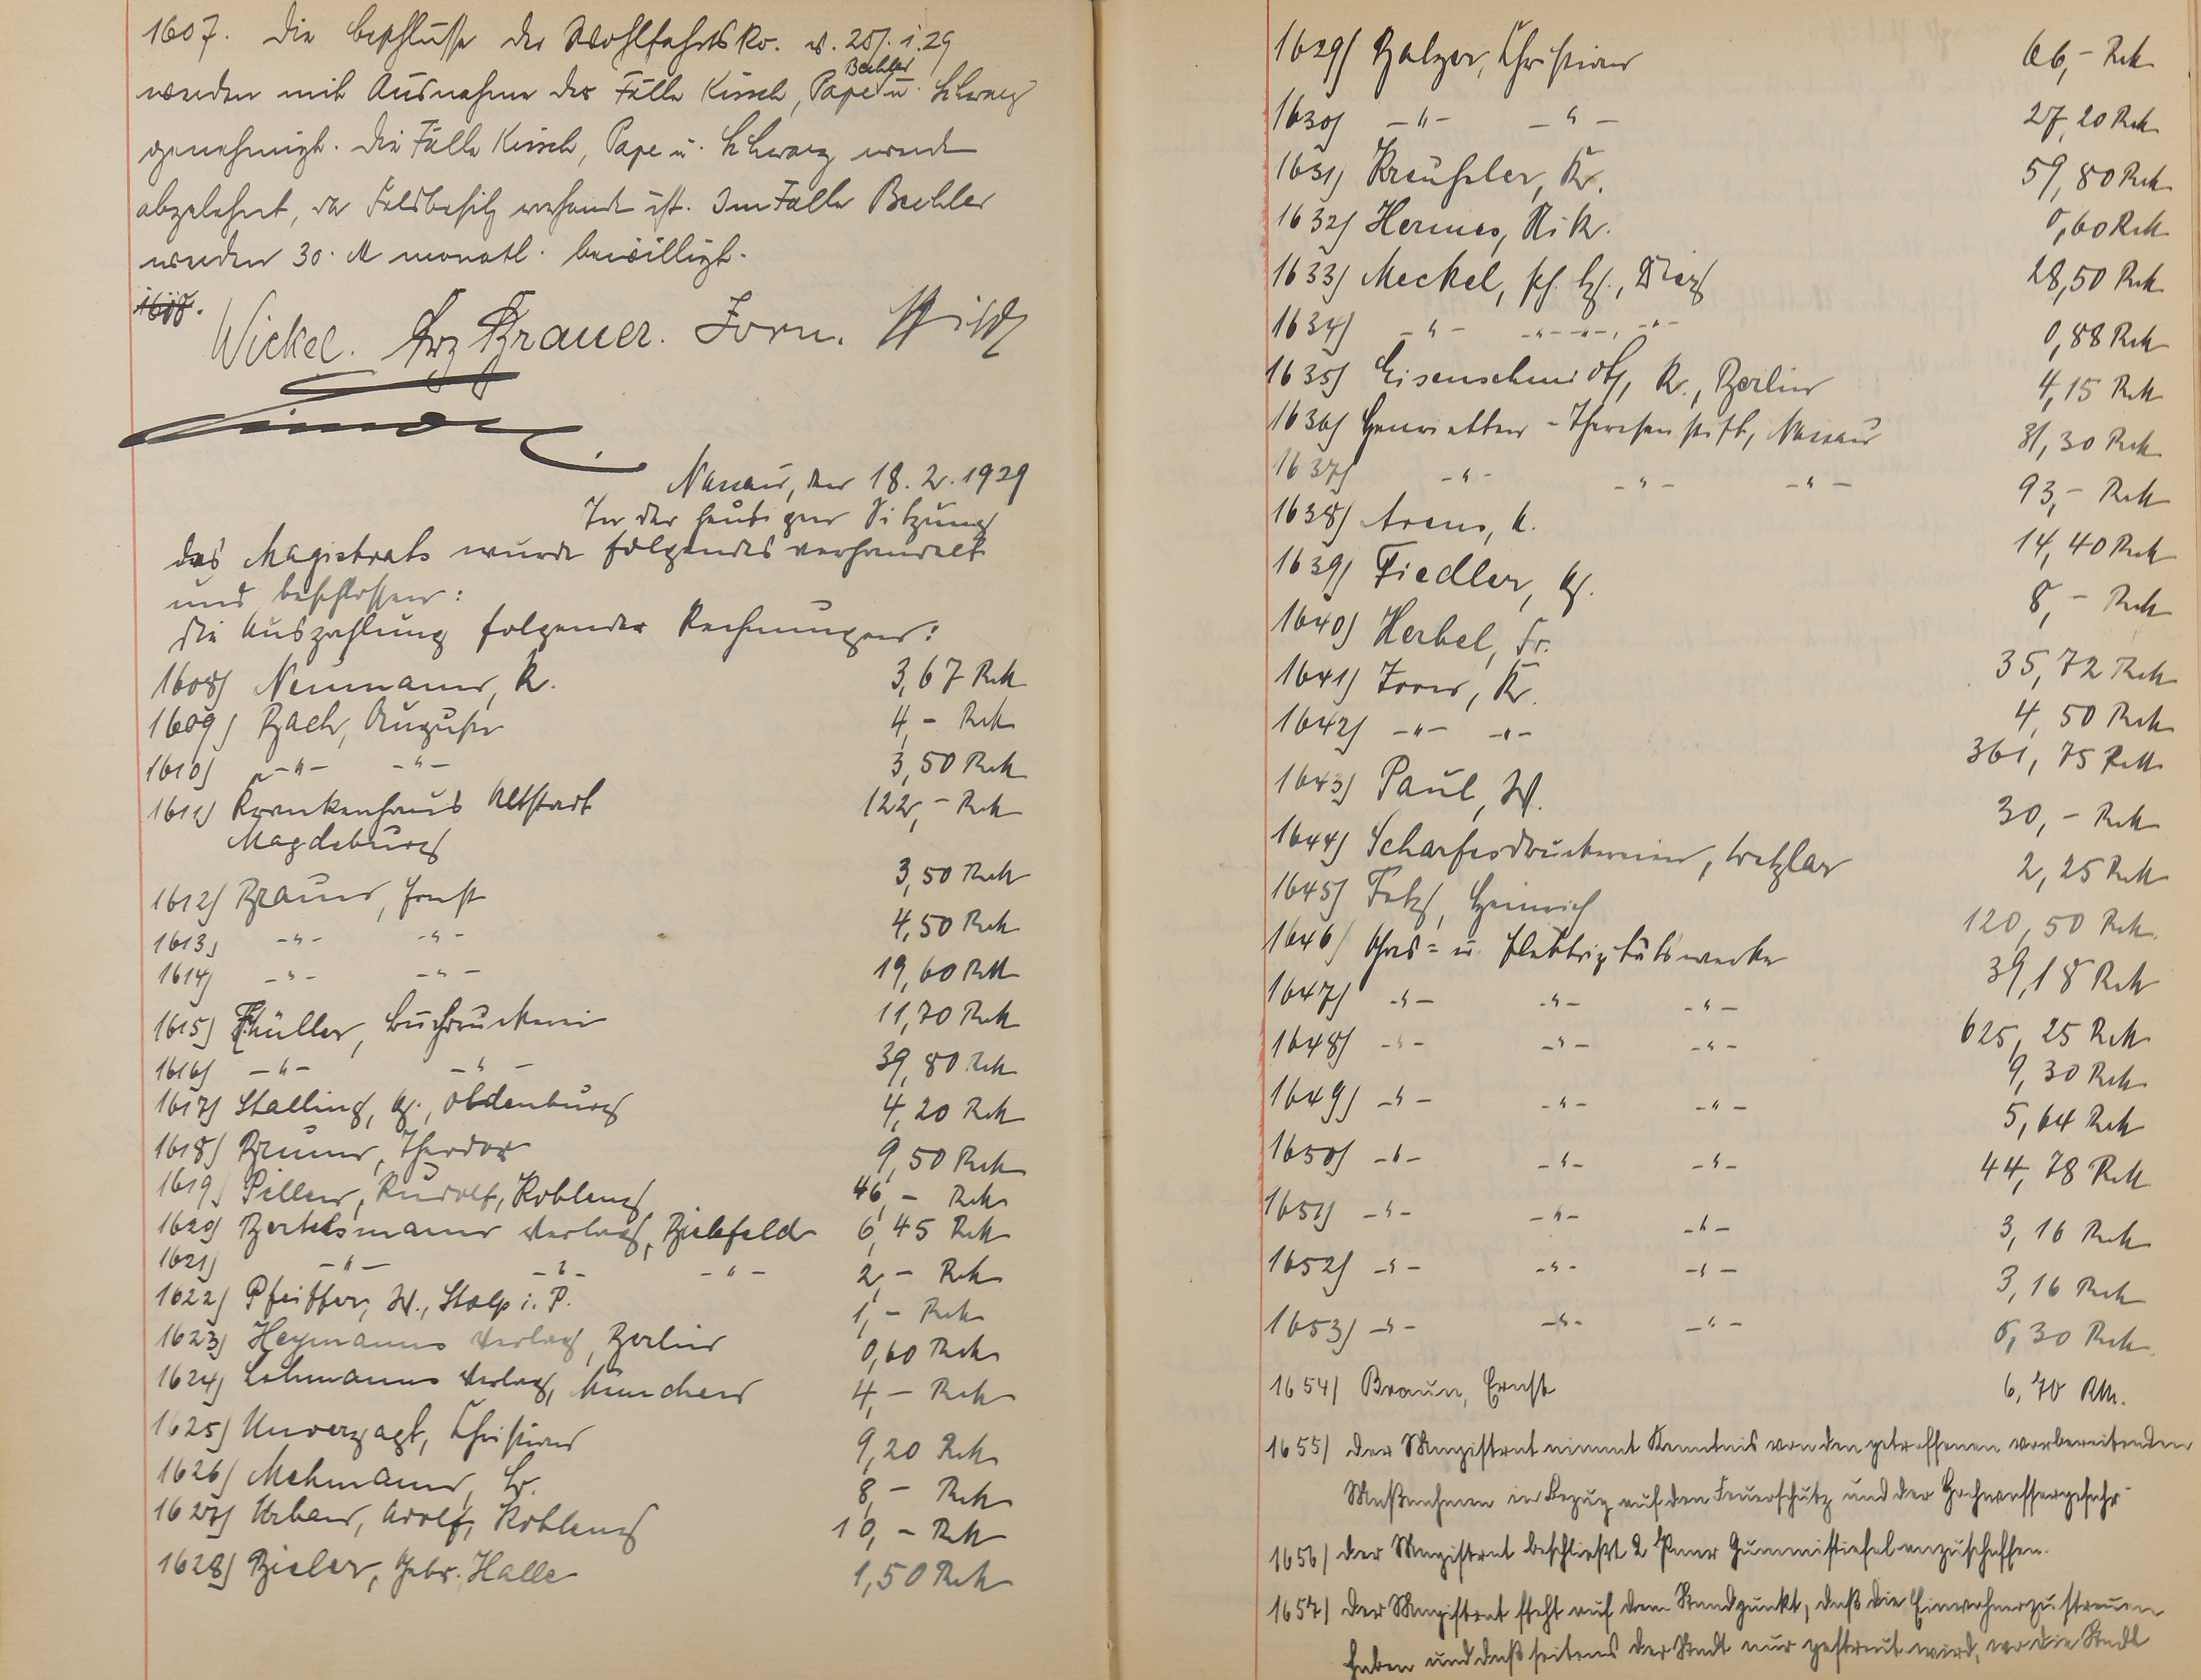 1607. Die Beschlüsse der Wohlfahrtsko. v. 25/.1.29
werden mit Ausnahme der Fälle Kirsch, Pape Bechler u. Schwarz
genehmigt. Die Fälle Kirsch, Pape u. Schwarz werden
abgelehnt, da Feldbesitz vorhanden ist. Im Falle Bechler
werden 30. M monatl. bewilligt.
1608.
Wickel. Brauer. Zorn.
Nassau, den 18.2.1929
In der heutigen Sitzung
des Magistrats wurde folgendes verhandelt
und beschlossen:
Die Auszahlung folgender Rechnungen:
1608) Neumann, K. 3,67 RM
1609) Bach, Auguste 4,- RM
1610) -"- -"- 3,50 RM
1611) Krankenhaus Altstadt 122,- RM
Magdeburg
1612) Braun, Ernst 3,50 RM
1613) -"- -"- 4,50 RM
1614) -"- -"- 19,60 RM
1615) Müller, Buchdruckerei 11,70 RM
1616) -"- -"- 39,80 RM
1617) Stalling, G., Oldenburg 4,20 RM
1618) Brunn, Theodor 9,50 RM
1619) Piller, Rudolf, Koblenz 46,- RM
1620) Bertelsmann Verlag, Bielefeld 6,45 RM
1621) -"- -"- -"- 2,- RM
1622) Pfeiffer, W., Stolp i. P. 1,- RM
1623) Heymanns Verlag, Berlin 0,60 RM
1624) Lehmanns Verlag, München 4,- RM
1625) Unverzagt, Christian 9,20 RM
1626) Mehmann, Hr. 8,- RM
1627) Urban, Adolf, Koblenz 10,- RM
1628) Bieler, Gebr. Halle 1,50 RM
1629) Balzer, Christian 66,- RM
1630) -"- -"- 27,20 RM
1631) Kreußler, K. 59,80 RM
1632) Hermes, Nik. 0,60 RM
1633) Meckel, ph. H., Diez 28,50 RM
1634) -"- -"- -"-, -"- 0,88 RM
1635) Eisenschmidt, K., Berlin 4,15 RM
1636) Henrietten-Theresenstift, Nassau 31,30 RM
1637) -"- -"- -"- 93,- RM
1638) Arens, A. 14,40 RM
1639) Fiedler, G. 8,- RM
1640) Herbel, Fr. 35,72 RM
1641) Zorn, K. 4,50 RM
1642) -"- -"- 361,75 RM
1643) Paul, W. 30,- RM
1644) Scharfesdruckereien, Wetzlar 2,25 RM
1645) Fetz, Heinrich 120,50 RM
1646) Gas- u. Elektrizitätswerke 39,18 RM
1647) -"- -"- -"- 625,25 RM
1648) -"- -"- -"- 9,30 RM
1649) -"- -"- -"- 5,64 RM
1650) -"- -"- -"- 44,78 RM
1651) -"- -"- -"- 3,16 RM
1652) -"- -"- -"- 3,16 RM
1653) -"- -"- -"- 6,30 RM
1654) Braun, Ernst 6,70 RM.
1655) Der Magistrat nimmt Kenntnis von den getroffenen vorbereitenden
Maßnahmen in Bezug auf den Feuerschutz und der Hochwassergefahr
1656) Der Magistrat beschließt 2 Paar Gummistiefel anzuschaffen.
1657) Der Magistrat steht auf dem Standpunkt, daß die Einwohner zu streuen
haben und daß seitens der Stadt nur gestreut wird, wo die Stadt